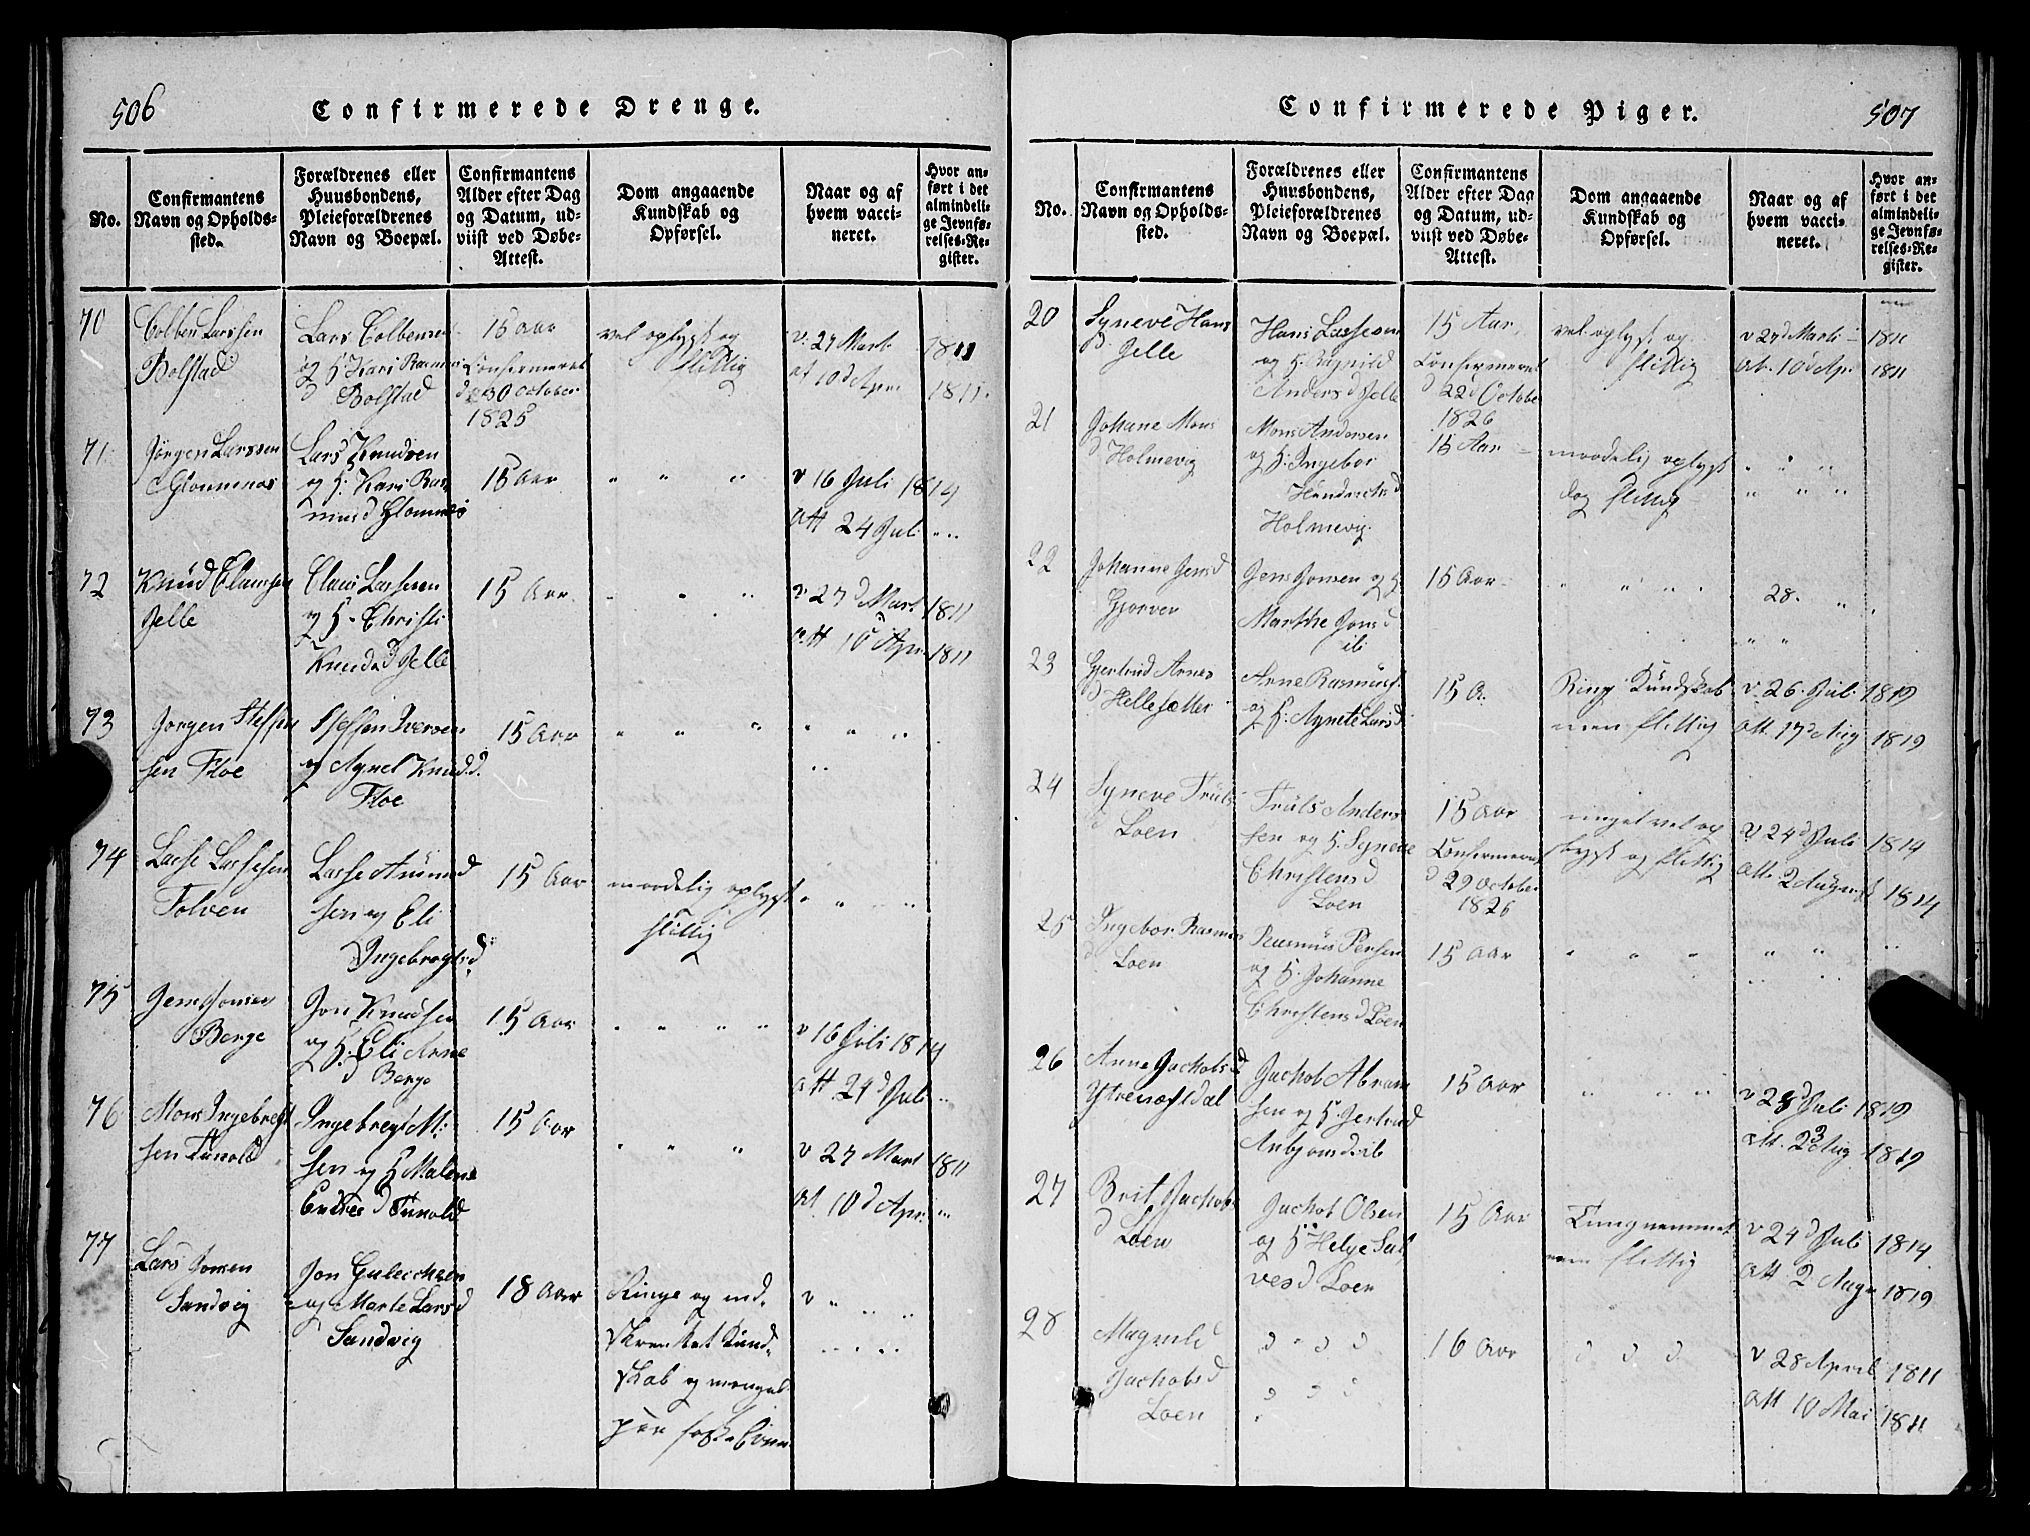 506
Confirmerede Drenge.
No.
Confirmantens
Navn og Opholds-
sted.
Forældrenes eller
Huusbondens,
Pleieforældrenes
Navn og Boepæl.
Confirmantens
Alder efter Dag
og Datum, ud-
viist ved Døbe-
Attest.
Dom angaaende
Kundskab og
Opførsel.
Naar og af
hvem vacci-
neret.
Hvor an-
ført i det
almindeli-
ge Jevnfø-
relses-Re-
gister.
70
Colben Larssen
Bolstad
Lars Colbensen
og H Kari Rasmus
d Bolstad
15 Aar
Confirmeret
d 30 October
1825
vel oplyst og
flittig
v. 27 Mart 1811
at 10 d Apr 1811.
71
Jörgen Larssen
Glommnæs
Lars Knudsen
og H. Kari Ras
musd Glomnes
15 Aar
" " "
v 16 Juli 1814
att 24 Juli "
72
Knud Clausen
Jelle
Claus Lassesen
og H. Christi
Knuds d Jelle
15 Aar
" " "
v. 27 d Mart 1811
att 10 d Apr. 1811
73
Jorgen Steffen
sen Floe
Steffen Iversen
og Agnet Knud.d.
Floe
15 Aar
" " "
" " "
74
Lasse Lassesen
Tolven
Lasse Amund
sen og Eli
Ingebregtsd.
15 Aar
maadelig oplyst
flittig
" " "
75
Jens Jonsen
Berge
Jon Knudsen
og H. Eli Arne
d Berge
15 Aar
" " " "
v 16 Juli 1814
att 24 d Juli "
76
Mons Ingebregt
sen Tunold
Ingebregt M:
sen og H Malene
Endre d Tunold
15 Aar
" " "
v 27 Mart 1811
at 10 d Apr. "
77
Lars Jonsen
Sandvig
Jon Guleichsen
og Marte Lars d
Sandvig
18 Aar
Ringe og ind-
skrenket Kund-
skab og mangel
paa
v " " "
507
Confirmerede Piger.
No.
Confirmantens
Navn og Opholds-
sted.
Forældrenes eller
Huusbondens,
Pleieforældrenes
Navn og Boepæl.
Confirmantens
Alder efter Dag
og Datum, ud-
viist ved Døbe-
Attest.
Dom angaaende
Kundskab og
Opførsel.
Naar og af
hvem vacci-
neret.
Hvor an-
ført i det
almindeli-
ge Jevnfø-
relses-Re-
gister.
20
Syneve Hans
d. Jelle
Hans Lassesen
og H. Ragnild
Anders d Jelle
15 Aar
Confirmeret
d 22 d October
1826
vel oplyst og
flittig
v 27 d Marti 1811
at. 10 d Apr 1811
21
Johane Mons
d Holmevig
Mons Andersen
og H. Ingebor
Hendrichs d
Holmevig.
15 Aar
maadelig oplyst
dog flittig
" " "
" " "
22
Johanne Jens d
Gjorven
Jens Jonsen og H
Marthe Jons d
ib
15 Aar
" " "
28. " "
" "
23
Gjertrud Arnes
d Hellesætter
Arne Rasmuss.
og H. Agnete Lars d
15 A.
Ring Kundskab
men flittig
v. 26. Juli 1819
att. 17 d Aug 1819
24
Syneve Truls
d Loen
Truls Anders
sen og H. Syneve
Christens d
Loen
15 Aar
Confirmeret
d 29 October
1826
meget vel op
lyst og flittig
v 24 d Juli 1814
att. 2 August 1814
25
Ingebor Rasmus
d Loen
Rasmus Persen
og H. Johanne
Christens d Loen
15 Aar
" " "
" " "
26
Anne Jachobs d.
Ytrenæsdal
Jachob Abram
sen og H. Jertrud
Anbjorns d ib
15 Aar
" " "
v 28 d Juli 1819
att. 23 Aug 1819
27
Brit Jachobs
d Loen
Jachob Olsen
og H Helge Sal
ves d Loen
15 Aar
Tungnemmet
men flittig
v 24 d Juli 1814
att 2 Augu 1819
28
Magnild
Jachobs d
Loen
d " d d
d d d
16 Aar
d d d
v 28 April 1811
att 10 Mai 1811